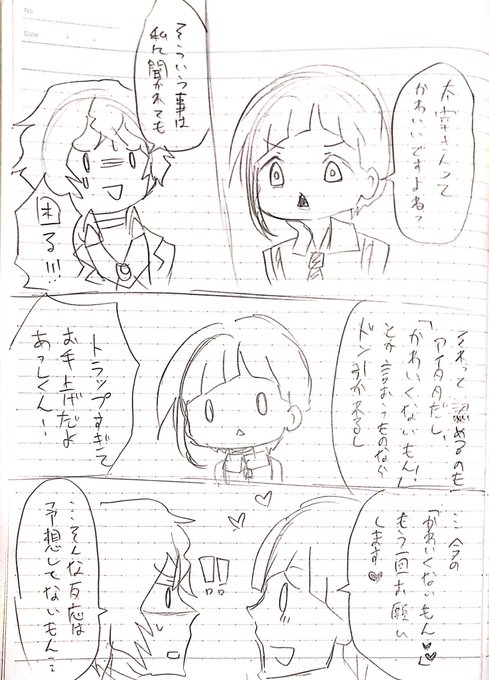 No.
Date
太宰さんって
かわいいですよね?
そういう事は
私に聞かれても
困る!!!
それって認めるのも
アイタタだし、
「かわいくないもん!」
とか言おうものなら
ドン引かれるし
トラップすぎて
お手上げだよ
あつしくん!
…今の
「かわいくないもん♥」
もう一回お願い
します♥
!!
…そんな反応は
予想してないもん…